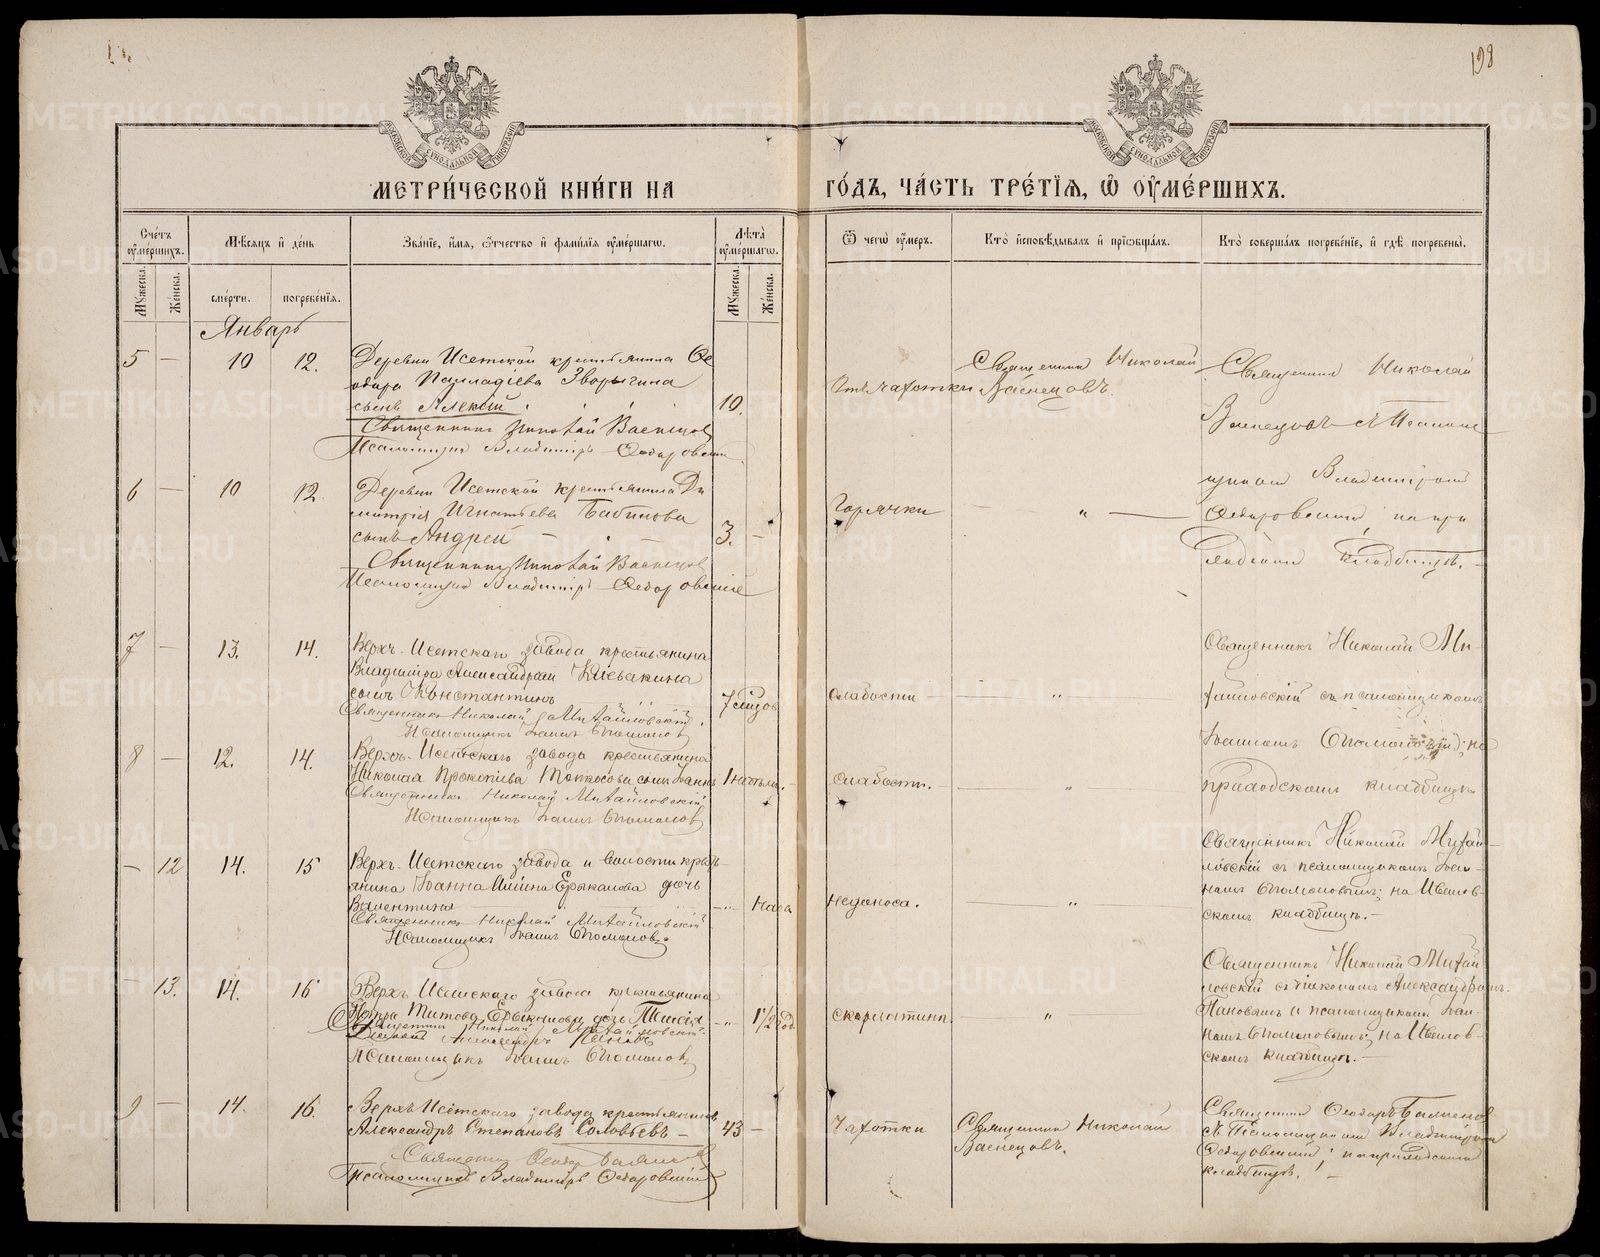 198
МЕТРИ́ЧЕСКОЙ КНИ́ГИ НА
ГО́ДЪ, ЧА́СТЬ ТРЕ́ТІЯ, Ѿ ОУМЕ́РШИХЪ.
Счётъ оумершихъ.
Мѣсяцъ и день
Званіе, имя, отчество и фамилія оумершагѡ.
Лѣта оумершагѡ.
Ѿ чегѡ оумеръ.
Кто исповѣдывалъ и пріобщалъ.
Кто совершалъ погребеніе, и гдѣ погребены.
Мужеска.
Женска.
смерти.
погребенія.
Мужеска.
Женска.
Январь
5 — 10 12.
Деревни Исетской крестьянина Ѳе
одора Палладіева Зворыгина
сынъ Алексій
10.
Священникъ Николай Васнецовъ
Псаломщикъ Владиміръ Ѳедоровскій
Отъ чахотки
Священникъ Николай
Васнецовъ.
Священникъ Николай
Васнецовъ съ Псаломщикомъ Владиміромъ
Ѳедоровскимъ, на при
ходскомъ кладбищѣ.
6 — 10 12.
Деревни Исетской крестьянина Ди
митрія Игнатьева Бабинова
сынъ Андрей
3. —
Священникъ Николай Васнецов
Псаломщикъ Владиміръ Ѳедоровскій
Горячки
— " —
7 — 13. 14.
Верхъ-Исетскаго завода крестьянина
Владиміра Александрова Клевакина
сынъ Константинъ
7 мѣсяцов
Священникъ Николай Михайловскій.
Псаломщикъ Іоаннъ
слабости
— " —
Священникъ Николай Ми-
хайловскій съ псаломщикомъ
Іоанномъ
приходскомъ кладбищѣ
8 — 12. 14.
Верхъ-Исетскаго завода крестьянина
Николая Прокопіева сынъ Іоаннъ
Священникъ Николай Михайловскій
Псаломщикъ Іоаннъ
Слабости.
— " —
— 12 14. 15
Верхъ-Исетскаго завода и волости кресть-
янина Іоанна дочь
Валентина
— " — Часа
Священникъ Николай Михайловскій
Псаломщикъ Іоаннъ
недоноса.
— " —
Священникъ Николай Михай-
ловскій съ псаломщикомъ Іоан-
номъ на Иванов-
скомъ кладбищѣ. —
— 13. 14. 16
Верхъ-Исетскаго завода крестьянина
Петра Титова дочь Таисія
- " - 1½ год.
Священникъ Николай Михайловскій.
Діаконъ Александръ Пановъ
Псаломщикъ Іоаннъ
скарлатины.
— " —
Священникъ Николай Михай
ловскій съ діакономъ Александромъ
Пановымъ и псаломщикомъ Іоан-
номъ на Иванов-
скомъ кладбищѣ. —
9 — 14. 16.
Верхъ-Исетскаго завода крестьянинъ
Александръ Степановъ Соловьевъ —
43 —
Священникъ Ѳеодоръ
Псаломщикъ Владиміръ Ѳедоровскій
Чахотки
Священникъ Николай
Васнецовъ.
Священникъ Ѳеодоръ
съ Псаломщикомъ Владиміромъ
Ѳедоровскимъ; на приходскомъ
кладбищѣ. —